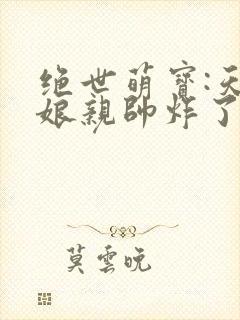 绝世萌寶:天
娘親帥炸了
莫雲晚